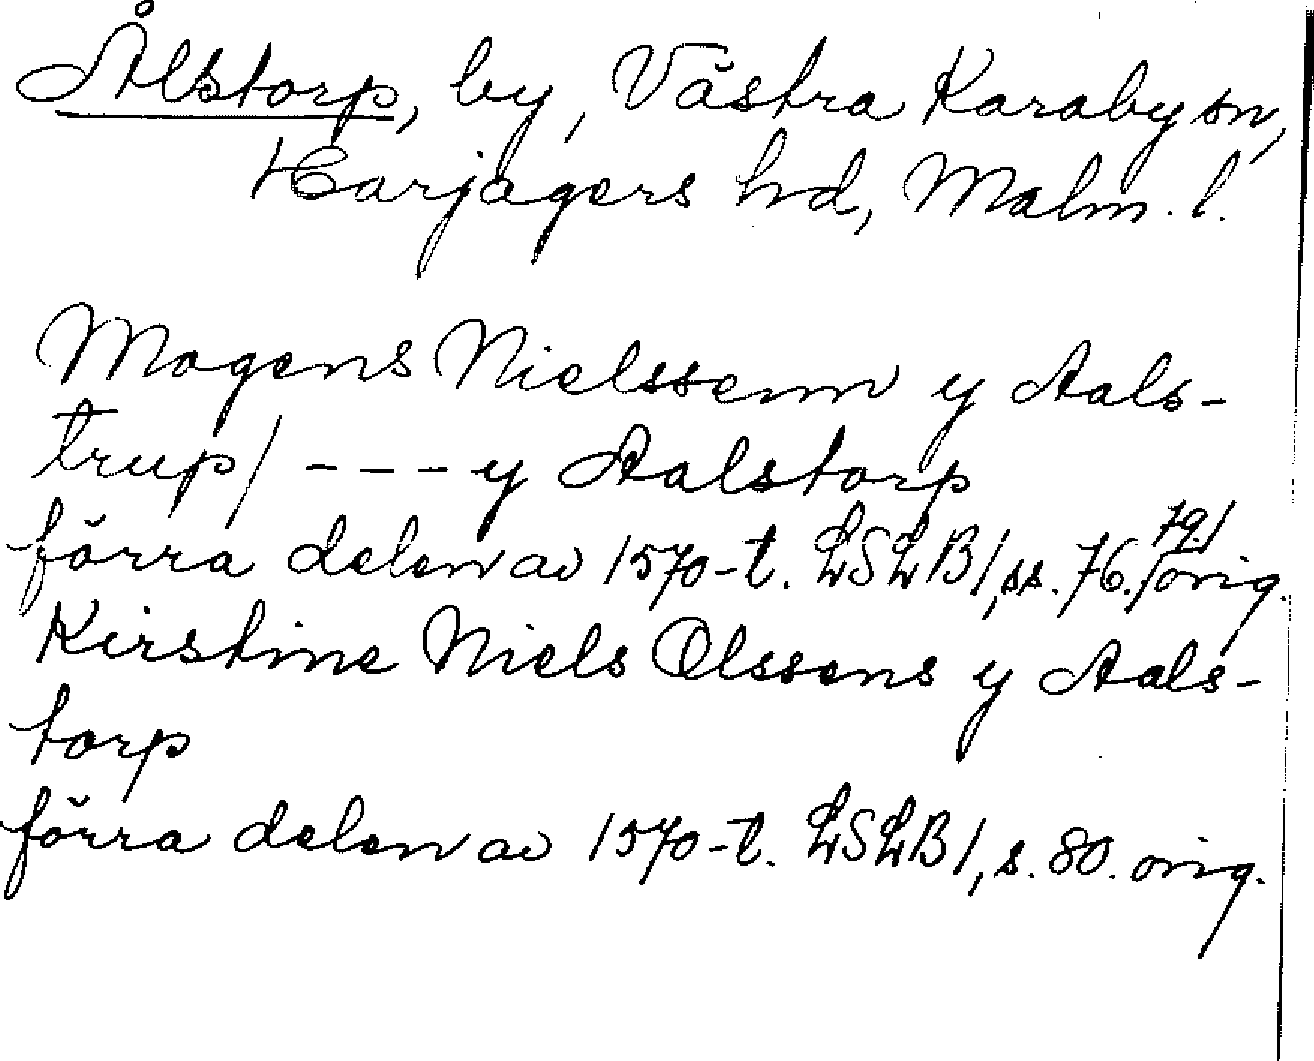 Ålstorp, by, Västra Karaby sn,
Harjagers hd, Malm. l.
Mogens Nielssenn y Aals-
trup/ --- y Aalstorp
förra delen av 1570-t. LSLB1, ss. 76./79/ orig.
Kirstine Niels Olssens y Aals-
torp
förra delen av 1570-t. LSLB1, s. 80. orig.